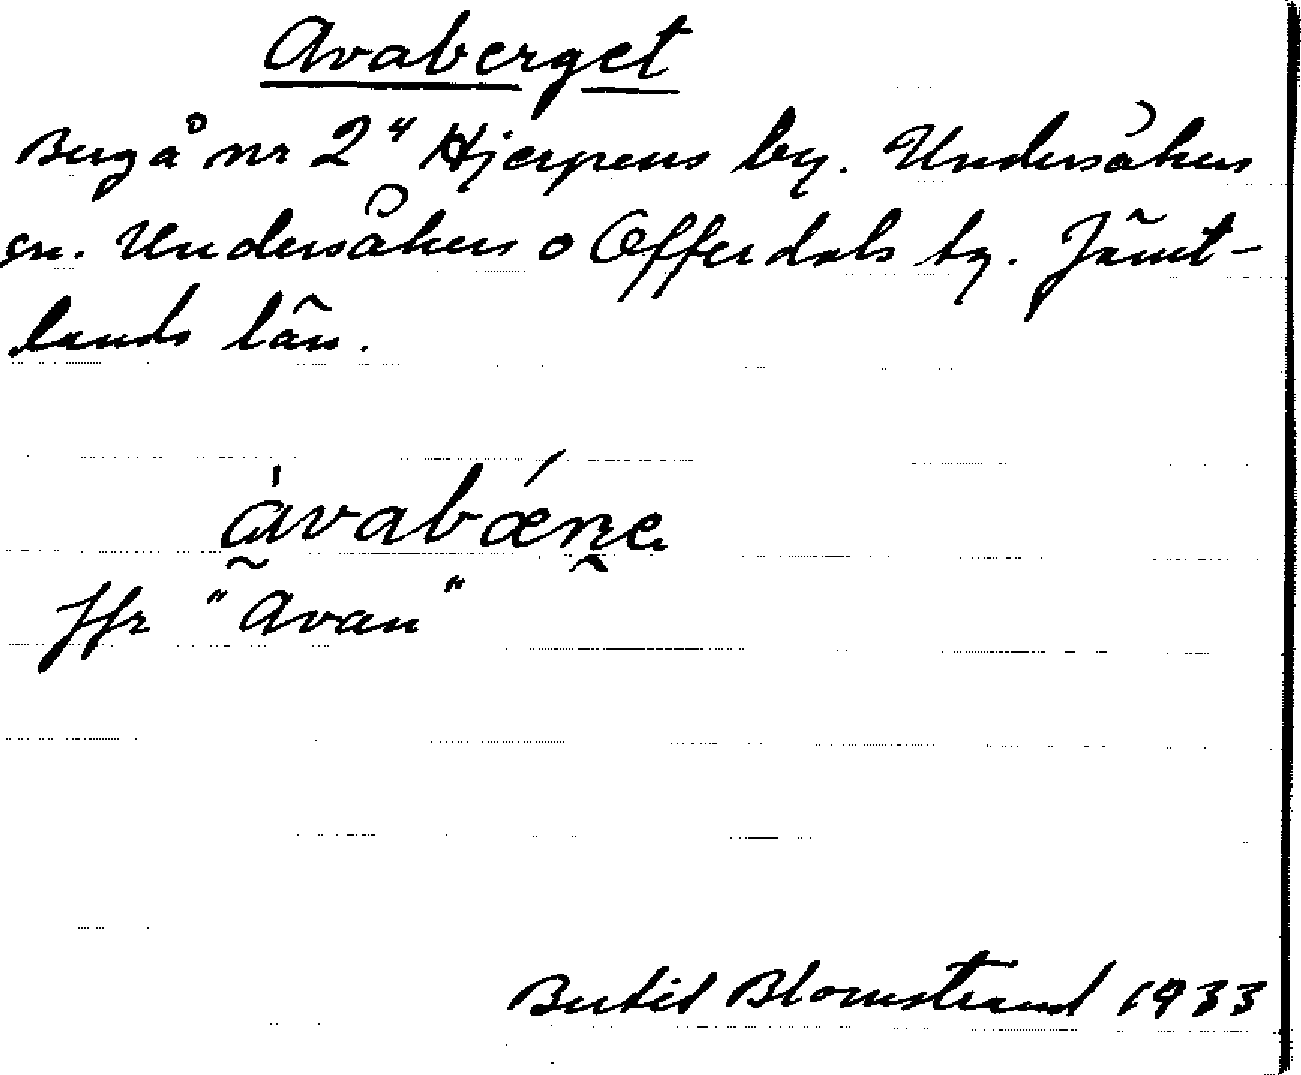 Avaberget
Berg å nr 2⁴ Hjerpens by. Undersåkers
sn. Undersåkers o Offerdals tg. Jämt-
lands län.
Jfr "Avan"
Bertil Blomstrand 1933